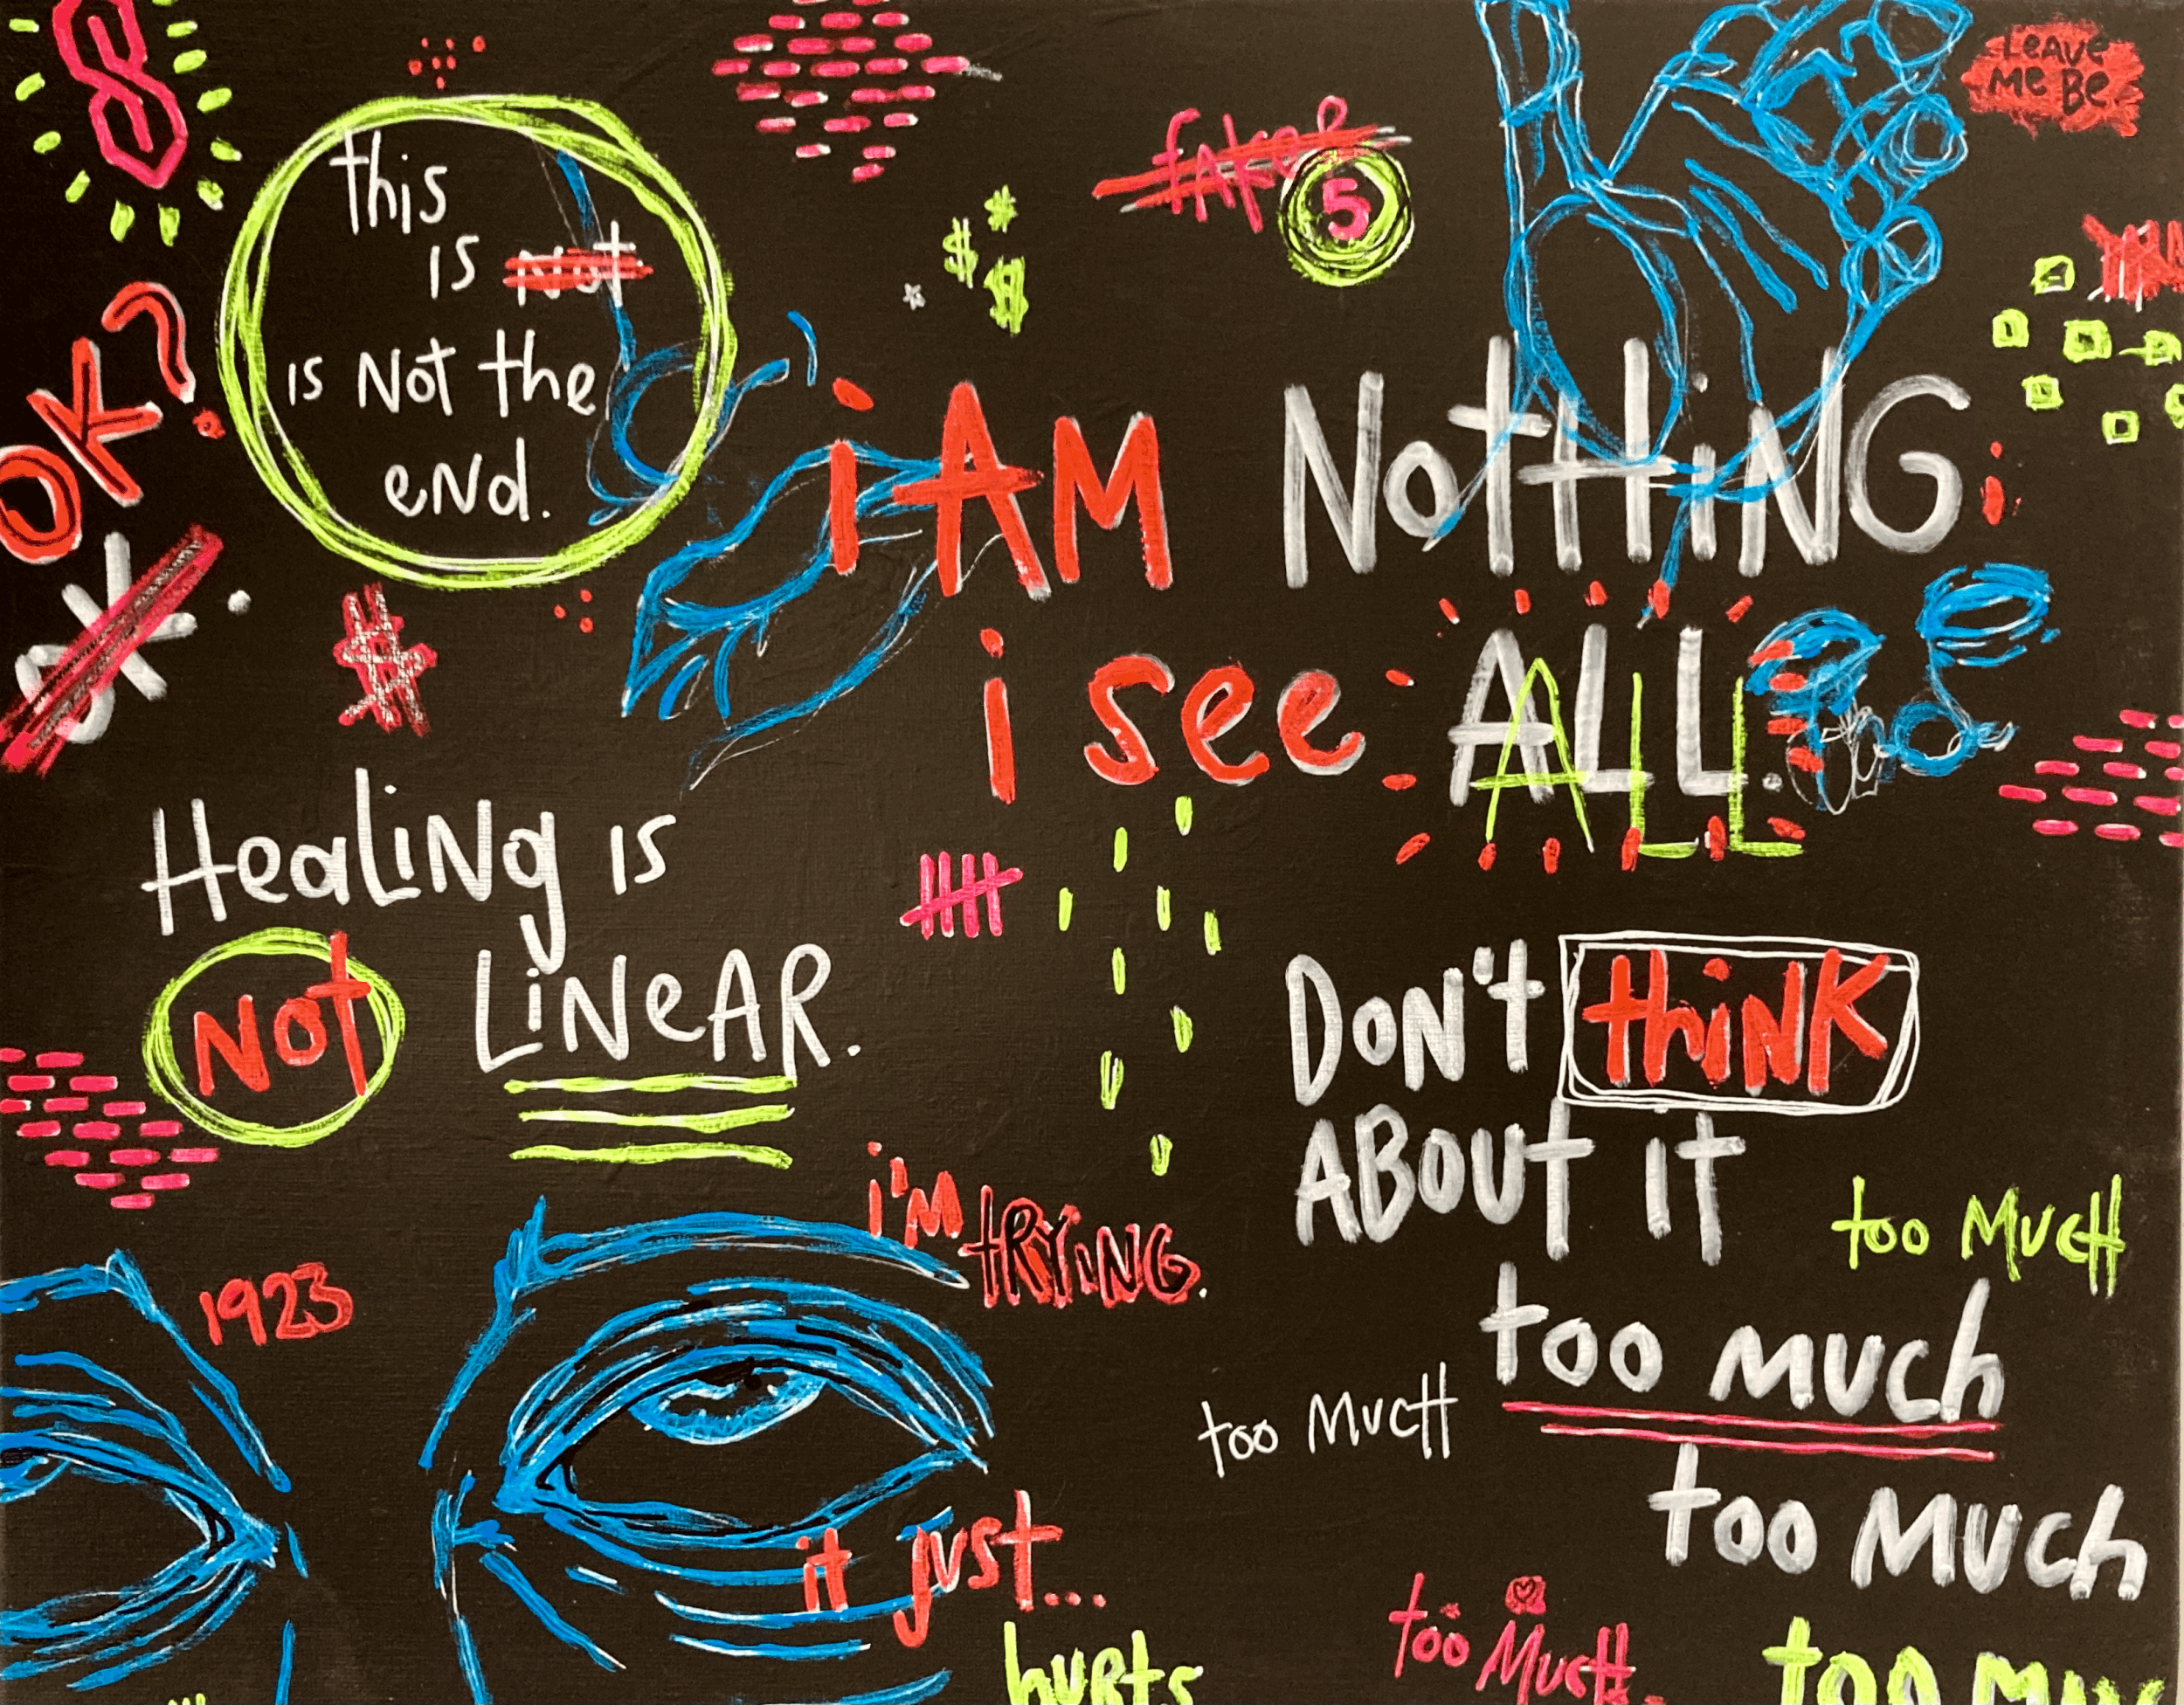 LEAVE
ME BE.
this
is not
is Not the
eNd.
fake
5
$
$
$
OK?
OK.
i AM NotHiNG
i see ALL.
ALL
#
HeaLiNg is
Not LiNeAR.
DoN't thiNK
ABout it
too MucH
too much
too MucH
too Much
i'M
tRYiNG.
1923
it just...
huRts
too MucH.
too Muc